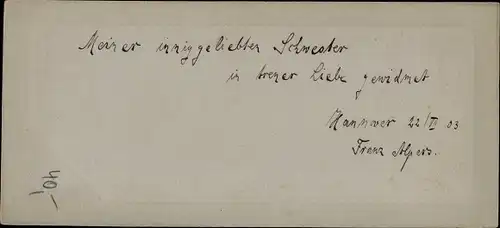 Meiner inniggeliebten Schwester
in treuer Liebe gewidmet
Hannover 22/IV 03
Franz Alpers.
40,-